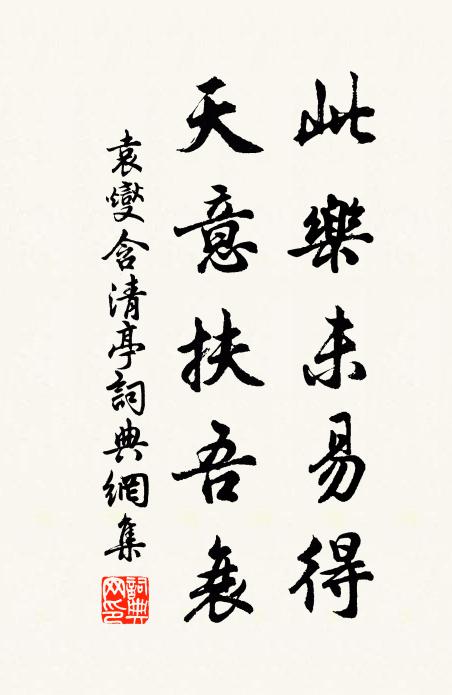 此樂未易得
天意扶吾衰
袁燮含清亭詞典網集
詞典網印